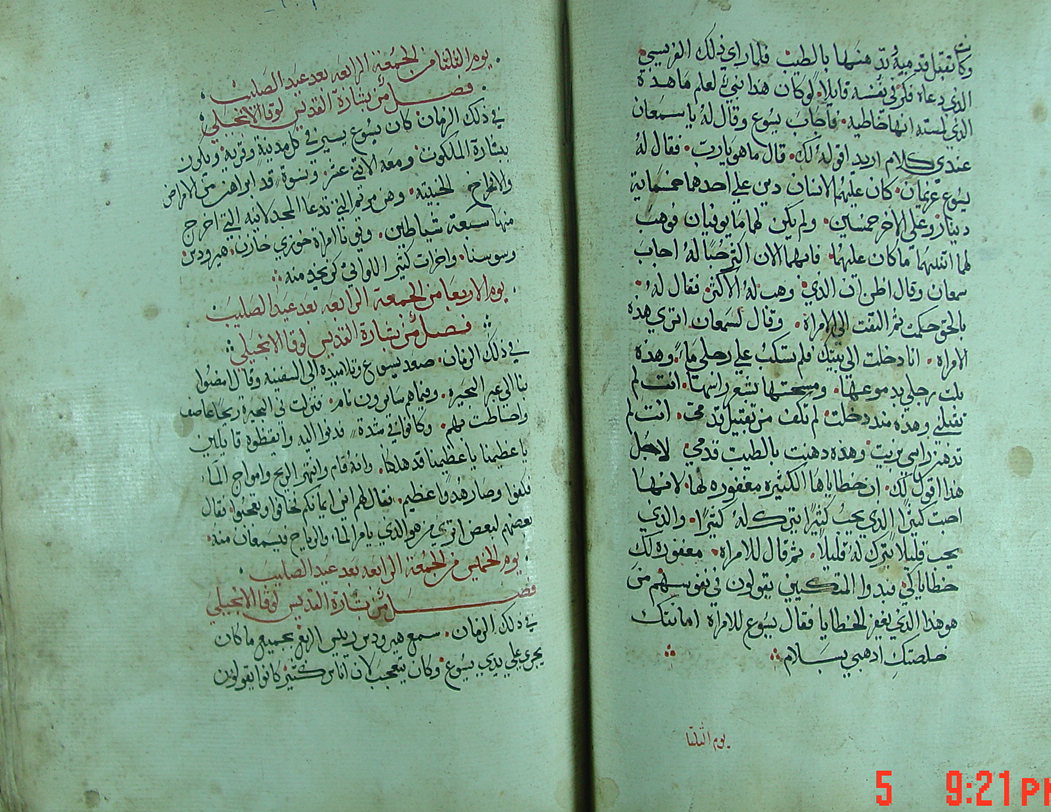 وكانت تقبل قدميه وتدهنهما بالطيب فلما راي ذلك الفريسي
الذي دعاه فكر في نفسه قايلا لو كان هذا نبي لعلم ما هذه
الذي لمسته انها خاطية فاجاب يسوع وقال له يا سمعان
عندي كلام اريد اقوله لك قال ما هو يارب فقال له
يسوع غريمان كان عليهما لانسان دين علي احدهما خمسماية
دينار وعلي الاخر خمسين ولم يكن لهما ما يوفيان فوهب
لهما اتنيهما ما كان عليهما فايهما الان اكثر حبا له اجاب
سمعان وقال اظن ان الذي وهب له الاكثر فقال له
بالحق حكمت ثم التفت الي الامراه وقال لسمعان اتري هذه
الامراه انا دخلت الي بيتك فلم تسكب علي رجلي ماء وهذه
بلت رجلي بدموعها ومسحتها بشعر راسها انت لم
تقبلني وهذه منذ دخلت لم تكف من تقبيل قدمي انت لم
تدهن راسي بزيت وهذه دهنت بالطيب قدمي لاجل
هذا اقول لك ان خطاياها الكثيره مغفوره لها لانها
احبت كثيرا الذي يحب كثيرا يترك له كثيرا والذي
يحب قليلا يترك له قليلا ثم قال للامراه مغفوره لك
خطاياكي فبدوا المتكيين يقولون في نفوسهم من
هو هذا الذي يغفر الخطايا فقال يسوع للامراه امانتك
خلصتك اذهبي بسلام
يوم الثلثا
يوم الثلثا من الجمعة الرابعه بعد عيد الصليب
فصل من بشارة القديس لوقا الانجيلي
في ذلك الزمان كان يسوع يسير في كل مدينة وقرية ويكرز
ببشارة الملكوت ومعه الاثني عشر ونسوة قد ابراهن من الامراض
والارواح الخبيثه وهن مريم التي تدعا المجدلانيه التي اخرج
منها سبعة شياطين ويونا امراة خوزي خازن هيرودس
وسوسنا واخرات كثير اللواتي كن يخدمنه
يوم الاربعا من الجمعة الرابعه بعد عيد الصليب
فصل من بشارة القديس لوقا الانجيلي
في ذلك الزمان صعد يسوع وتلاميذه الي السفينة وقال امضوا
بنا الي عبر البحيره وفيما هم سايرون نام فنزلت في البحيرة ريحا عاصف
واحتاطت بهم وكانوا في شدة فدنوا اليه وايقظوه قايلين
يا عظيمنا يا عظيمنا قد هلكنا وانه قام وانتهر الريح وامواج الماء
فكفوا وصار هدوا عظيم فقال لهم اين ايمانكم فخافوا وتعجبوا وقال
بعضهم لبعض اتري من هو الذي يامر الماء والرياح فيسمعان منه
يوم الخميس من الجمعة الرابعه بعد عيد الصليب
فصل من بشارة القديس لوقا الانجيلي
في ذلك الزمان سمع هيرودس ريس الربع بجميع ما كان
يجري علي يدي يسوع وكان يتعجب لان اناس كثير كانوا يقولون
5 9:21 PM